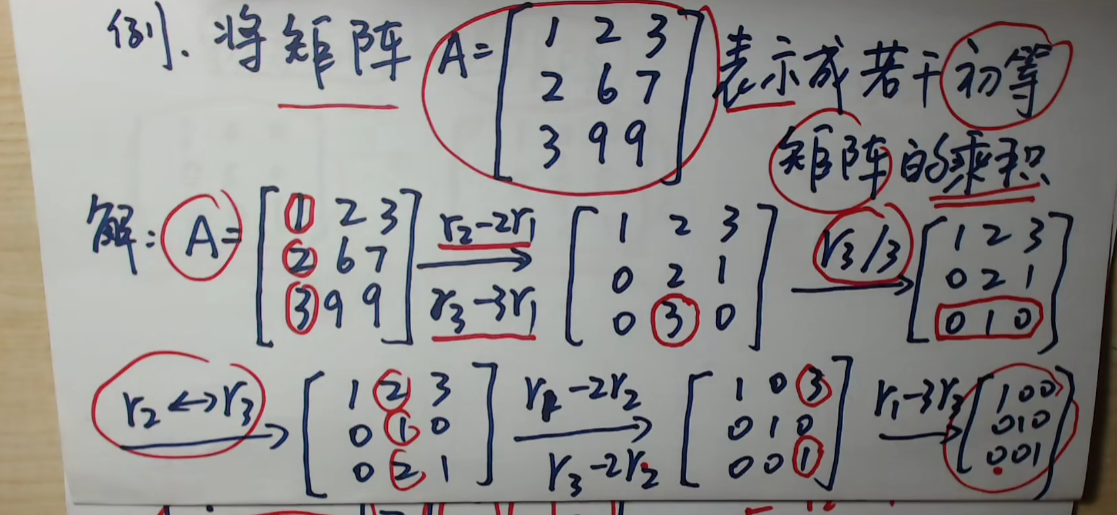 例. 将矩阵 A= [1 2 3; 2 6 7; 3 9 9] 表示成若干初等
矩阵的乘积
解: A= [1 2 3; 2 6 7; 3 9 9] r₂-2r₁ r₃-3r₁ → [1 2 3; 0 2 1; 0 3 0] r₃/3 → [1 2 3; 0 2 1; 0 1 0]
r₂↔r₃ → [1 2 3; 0 1 0; 0 2 1] r₁-2r₂ r₃-2r₂ → [1 0 3; 0 1 0; 0 0 1] r₁-3r₃ → [1 0 0; 0 1 0; 0 0 1]